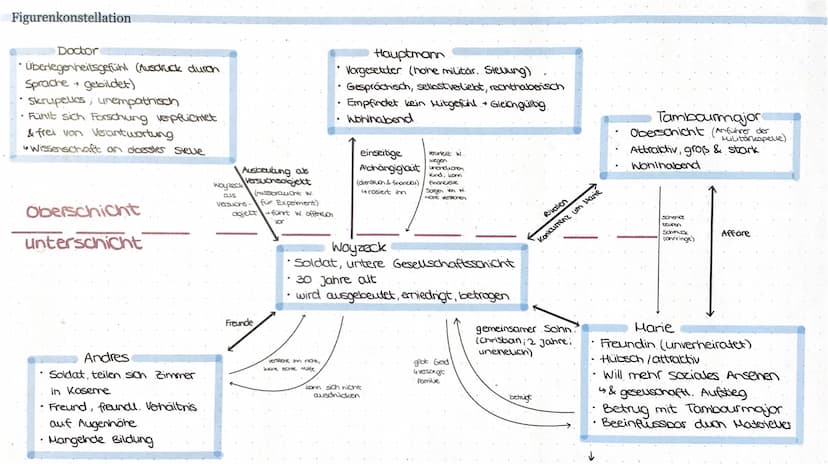 Figurenkonstellation
Doctor
· Überlegenheitsgefühl (Ausdruck durch
Sprache → gebildet)
· Skrupellos, unempathisch
· Fühlt sich Forschung verpflichtet
& frei von Verantwortung
↳ Wissenschaft an oberster Stelle
Hauptmann
· Vorgesetzter (hohe militär. Stellung)
· Gesprächisch, selbstverliebt, rechthaberisch
· Empfindet kein Mitgefühl → Gleichgültig
· Wohlhabend
Tambourmajor
· Oberschicht (Anführer der
Militärkapelle)
· Attraktiv, groß & stark
· Wohlhabend
Ausbeutung als
Versuchsobjekt
(missbraucht W.
für Experiment)
→ führt W. öffentlich
vor
Woyzeck
als
Versuchs-
objekt
einseitige
Abhängigkeit
(dienstlich & finanziell)
↳ rasiert ihn
verurteilt W.
wegen
unehelichem
Kind, kann
finanzielle
Sorgen von W.
nicht verstehen
Rivalen
Konkurrenz um Marie
schenkt
teuren
Schmuck
(Ohrringe)
Affäre
Oberschicht
Unterschicht
Woyzeck
· Soldat, untere Gesellschaftsschicht
· 30 Jahre alt
· wird ausgebeutet, erniedrigt, betrogen
Freunde
versteht ihn nicht,
keine echte Hilfe
kann sich nicht
ausdrücken
gibt Geld
& versorgt
Familie
gemeinsamer Sohn
(Christian; 2 Jahre;
unehelich)
betrügt
Andres
· Soldat, teilen sich Zimmer
in Kaserne
· Freund, freundl. Verhältnis
auf Augenhöhe
· Mangelnde Bildung
Marie
· Freundin (unverheiratet)
· Hübsch/attraktiv
· Will mehr soziales Ansehen
↳ & gesellschaftl. Aufstieg
· Betrug mit Tambourmajor
· Beeinflussbar durch Materielles